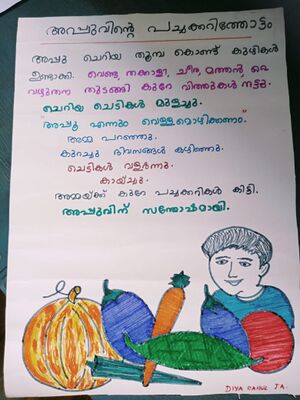 അപ്പുവിന്റെ പച്ചക്കറിത്തോട്ടം
അപ്പു ചെറിയ തൂമ്പ കൊണ്ട് കുഴികൾ
ഉണ്ടാക്കി. വെണ്ട, തക്കാളി, ചീര, മത്തൻ,
വഴുതന തുടങ്ങി കുറേ വിത്തുകൾ നട്ടു.
ചെറിയ ചെടികൾ മുളച്ചു.
"അപ്പൂ എന്നും വെള്ളമൊഴിക്കണം"
അമ്മ പറഞ്ഞു.
കുറച്ചു ദിവസങ്ങൾ കഴിഞ്ഞു.
ചെടികൾ വളർന്നു.
കായ്ച്ചു.
അമ്മയ്ക്ക് കുറേ പച്ചക്കറികൾ കിട്ടി.
അപ്പുവിന് സന്തോഷമായി.
DIYA 1A.